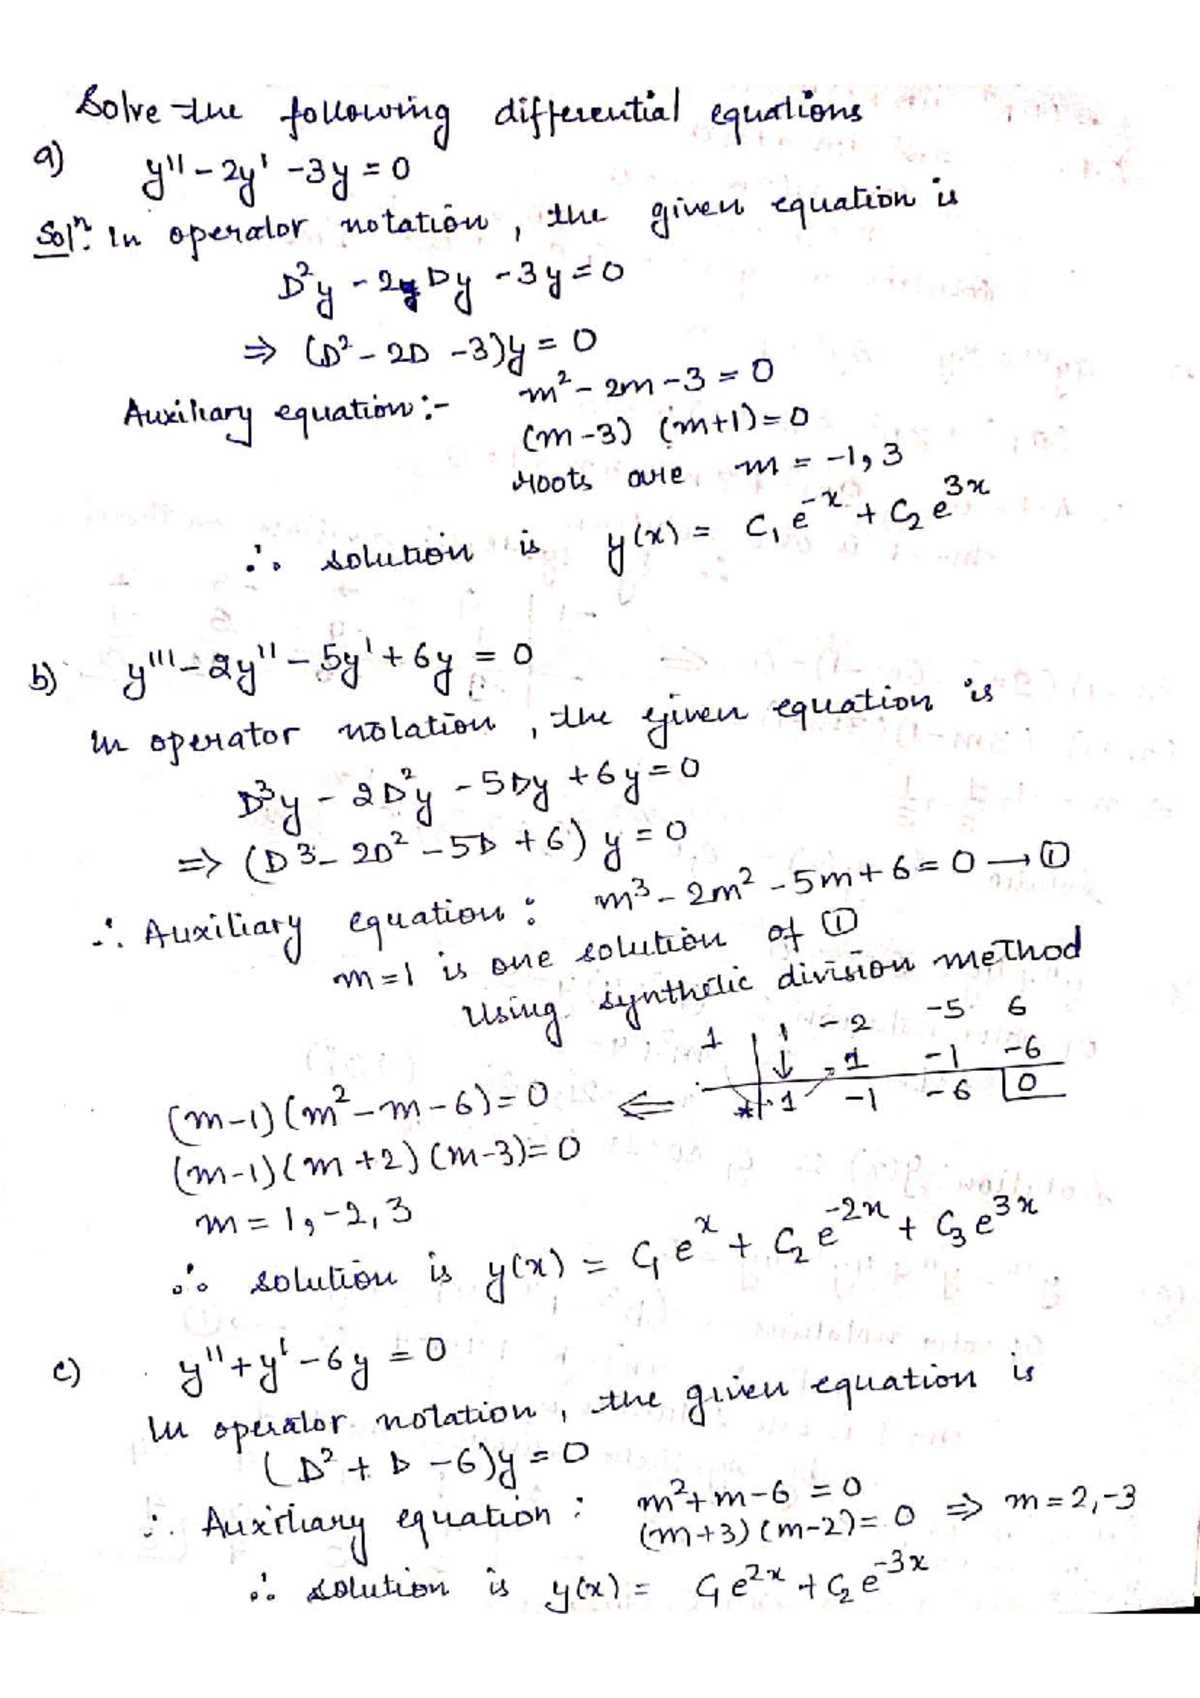 Solve the following differential equations
a) y'' - 2y' - 3y = 0
Solⁿ. In operator notation, the given equation is
D²y - 2Dy - 3y = 0
⇒ (D² - 2D - 3)y = 0
Auxiliary equation :- m² - 2m - 3 = 0
(m-3) (m+1) = 0
roots are m = -1, 3
∴ solution is y(x) = C₁e⁻ˣ + C₂e³ˣ
b) y''' - 2y'' - 5y' + 6y = 0
In operator notation, the given equation is
D³y - 2D²y - 5Dy + 6y = 0
⇒ (D³ - 2D² - 5D + 6) y = 0
∴ Auxiliary equation : m³ - 2m² - 5m + 6 = 0 → ①
m = 1 is one solution of ①
Using synthetic division method
1 | 1 -2 -5 6
↓ 1 -1 -6
1 -1 -6 | 0
(m-1)(m² - m - 6) = 0 ⇐
(m-1)(m+2)(m-3) = 0
m = 1, -2, 3
∴ solution is y(x) = C₁eˣ + C₂e⁻²ˣ + C₃e³ˣ
c) y'' + y' - 6y = 0
In operator notation, the given equation is
(D² + D - 6)y = 0
∴ Auxiliary equation : m² + m - 6 = 0
(m+3)(m-2) = 0 ⇒ m = 2, -3
∴ solution is y(x) = C₁e²ˣ + C₂e⁻³ˣ